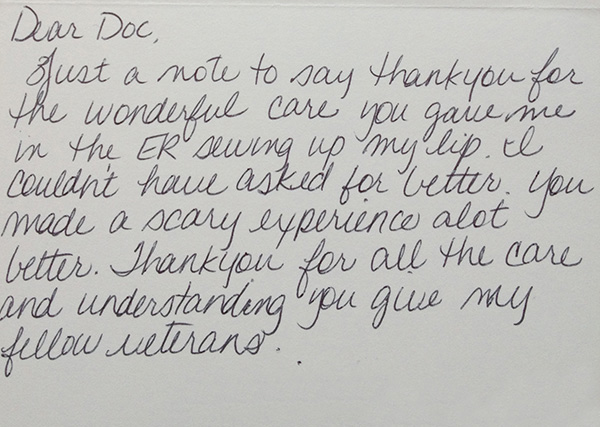 Dear Doc,
Just a note to say thankyou for
the wonderful care you gave me
in the ER sewing up my lip. I
couldn't have asked for better. You
made a scary experience alot
better. Thankyou for all the care
and understanding you give my
fellow veterans.